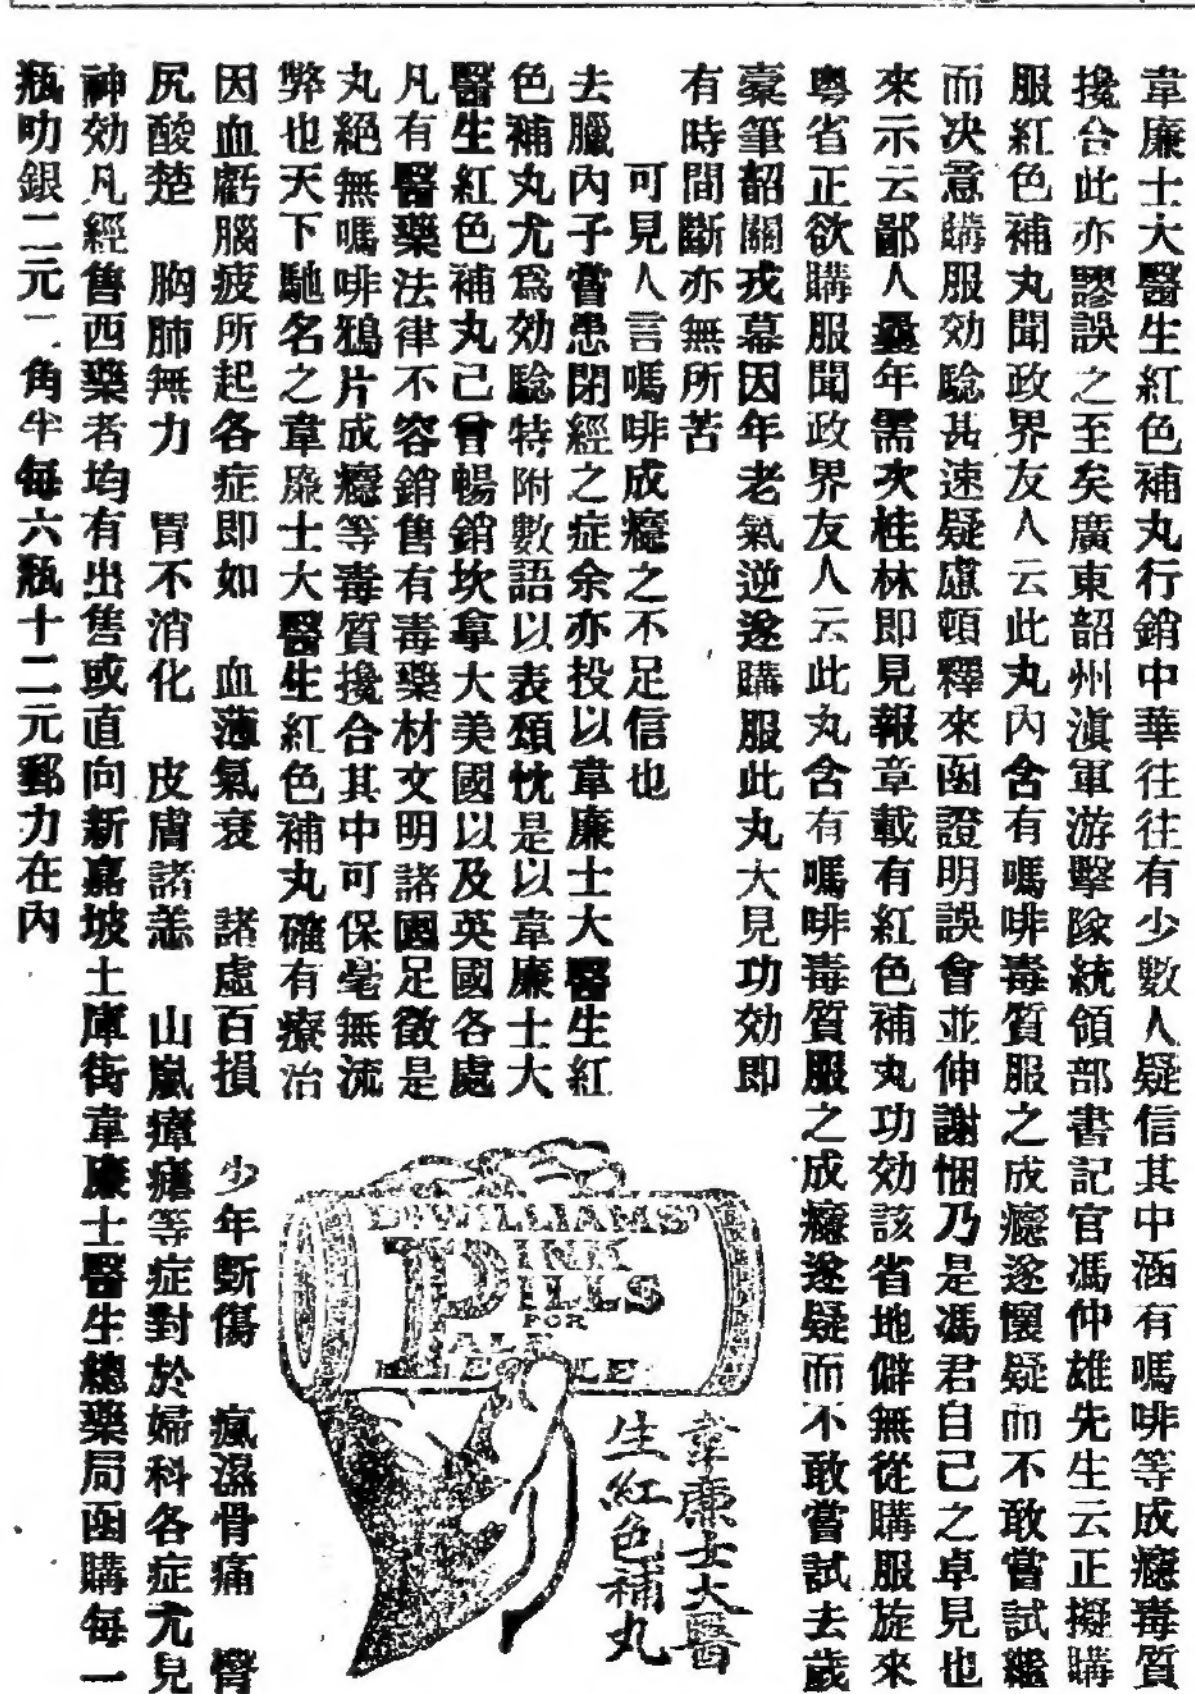 韋廉士大醫生紅色補丸行銷中華往往有少數人疑信其中涵有嗎啡等成癮毒質
攙合此亦謬誤之至矣廣東韶州滇軍游擊隊統領部書記官馮仲雄先生云正擬購
服紅色補丸聞政界友人云此丸內含有嗎啡毒質服之成癮遂懷疑而不敢嘗試繼
而决意購服効驗甚速疑慮頓釋來函證明誤會並伸謝悃乃是馮君自己之卓見也
來示云鄙人曩年需次桂林即見報章載有紅色補丸功効該省地僻無從購服旋來
粵省正欲購服聞政界友人云此丸含有嗎啡毒質服之成癮遂疑而不敢嘗試去歲
槖筆韶關戎幕因年老氣逆遂購服此丸大見功効即
有時間斷亦無所苦
可見人言嗎啡成癮之不足信也
去臘內子嘗患閉經之症余亦投以韋廉士大醫生紅
色補丸尤為効驗特附數語以表頌忱是以韋廉士大
醫生紅色補丸已曾暢銷坎拿大美國以及英國各處
凡有醫藥法律不容銷售有毒藥材文明諸國足徵是
丸絕無嗎啡鴉片成癮等毒質攙合其中可保毫無流
弊也天下馳名之韋廉士大醫生紅色補丸確有療治
因血虧腦疲所起各症即如 血薄氣衰 諸虛百損 少年斲傷 瘋濕骨痛 臀
尻酸楚 胸肺無力 胃不消化 皮膚諸恙 山嵐瘴瘧等症對於婦科各症尤見
神効凡經售西藥者均有出售或直向新嘉坡土庫街韋廉士醫生總藥局函購每一
瓶叻銀二元二角半每六瓶十二元郵力在內
DR WILLIAMS'
PINK
PILLS
FOR
PALE
PEOPLE
韋廉士大醫
生紅色補丸